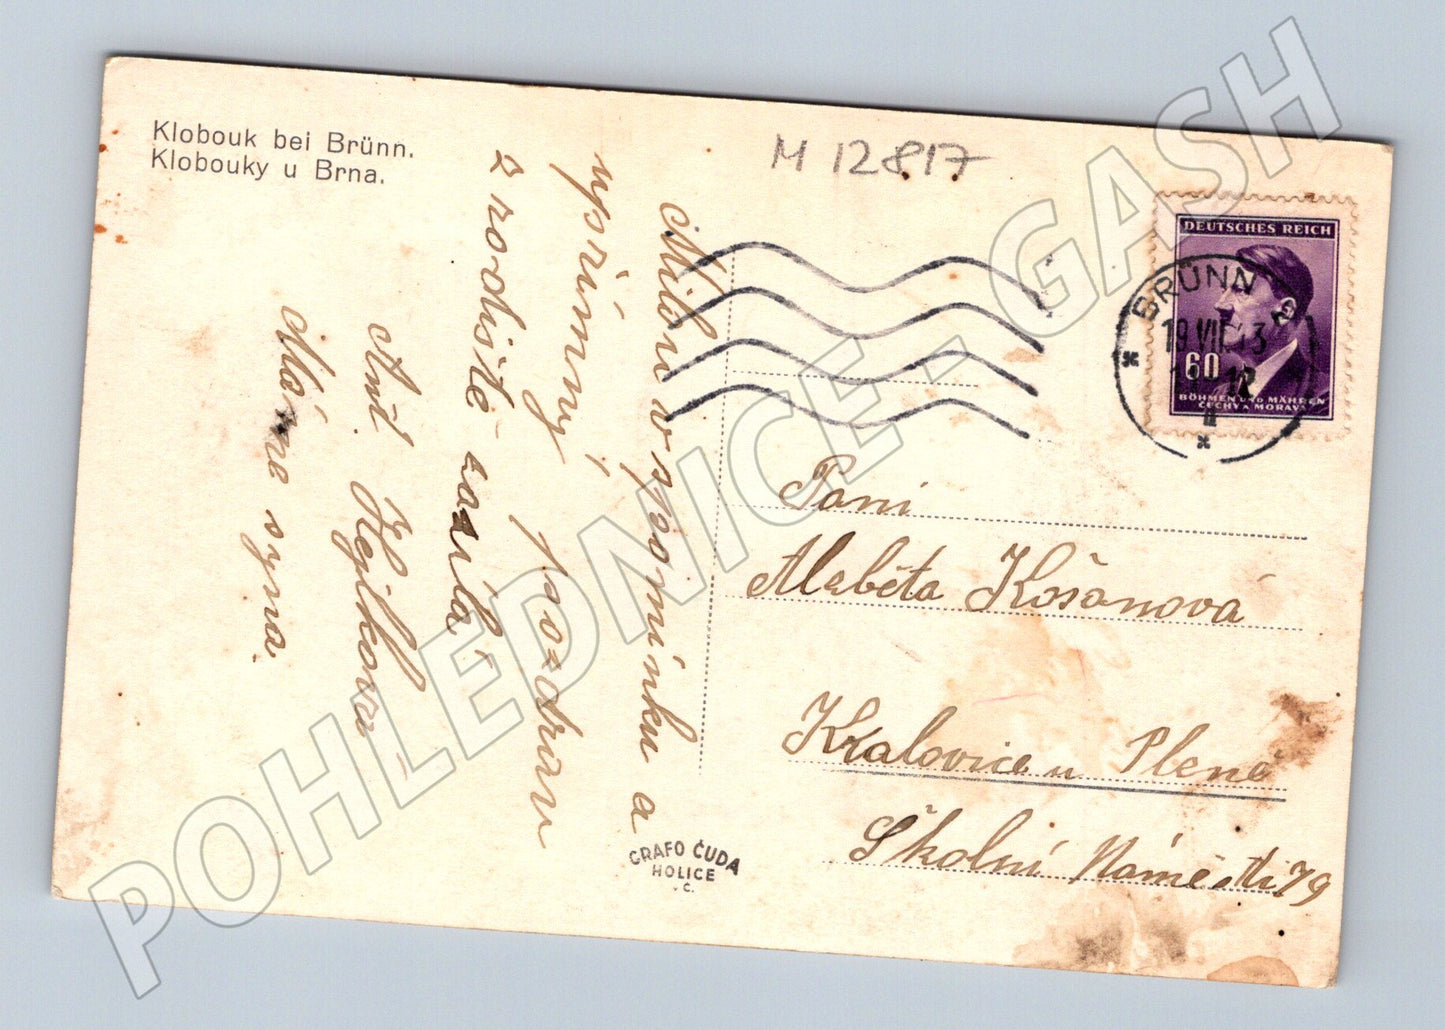 Klobouk bei Brünn.
Klobouky u Brna.
M 12817
DEUTSCHES REICH
60
BÖHMEN UND MÄHREN
ČECHY A MORAVA
BRÜNN 2
19 VII
12
Milou vzpomínku a
upřímný pozdrav
z rodiště zasílá
Ant.
syna
Paní
Alžběta Košanová
Kralovice u Plzně
Školní Náměstí 79
GRAFO ČUDA
HOLICE
v. Č.
POHLEDNICE - GASH